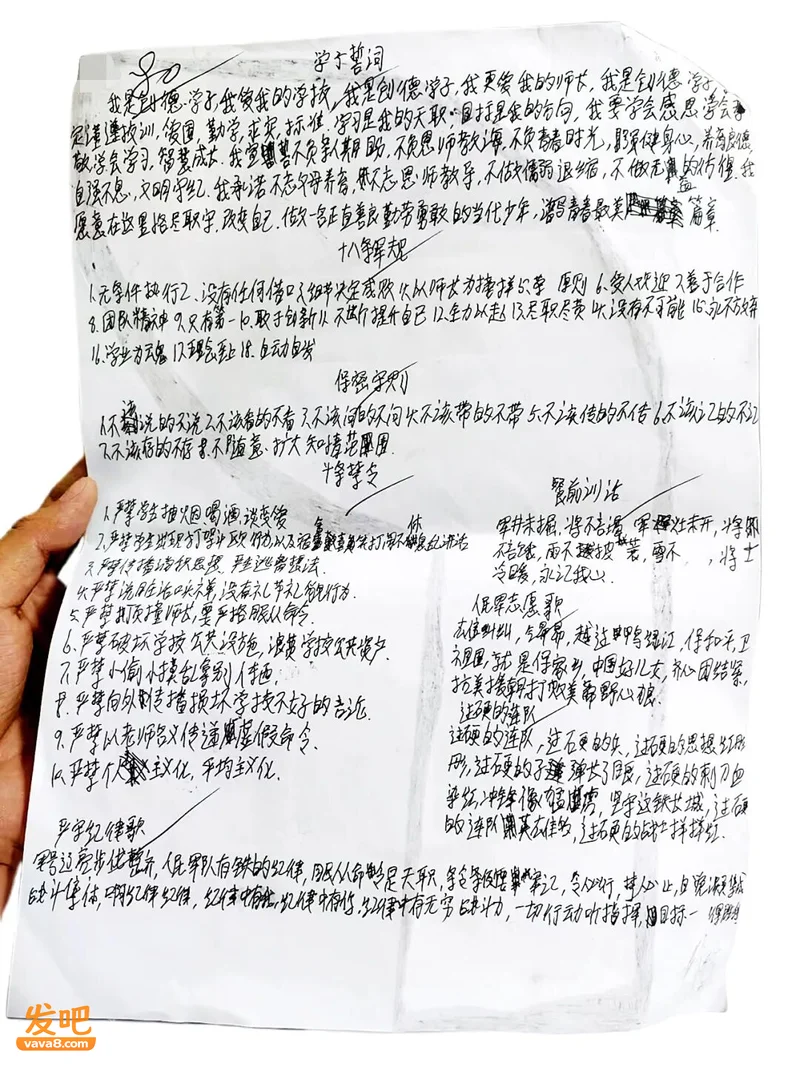 学子誓词
我是创德学子,我爱我的学校,我是创德学子,我更爱我的师长,我是创德学子
定谨遵校训,爱国,勤学,求实,标准,学习是我的天职,目标是我的方向,我要学会感恩学会
敬学会学习,智慧成长,我宣誓不负亲人期盼,不负恩师教诲,不负青春时光,强健身心,养育良德
自强不息,文明守纪,我承诺不忘父母养育,不忘恩师教导,不做懦弱退缩,不做无益的彷徨,我
愿意在这里恪尽职守,改变自己,做一名正直善良勤劳勇敢的当代少年,谱写青春最美篇章
十八条军规
1.无条件执行2.没有任何借口3.细节决定成败4.以师长为榜样5.荣 原则6.受人欢迎7.善于合作
8.团队精神9.只有第一10.敢于创新11.不断提升自己12.全力以赴13.尽职尽责14.没有不可能15.永不放弃
16.学业为魂17.理念至上18.自动自发
保密守则
1.不该说的不说2.不该看的不看3.不该问的不问4.不该带的不带5.不该传的不传6.不该记的不记
7.不该存的不存8.不随意扩大知情范围
十条禁令
1.严禁学生抽烟,喝酒,谈恋爱
2.严禁学生出现打架斗殴行为以及
3.严禁传播消极思想,产生
4.严禁说脏话 没有礼节礼貌行为
5.严禁打顶撞师长,要严格服从命令
6.严禁破坏学校公共设施,浪费学校公共资产
7.严禁小偷小摸乱拿别人东西
8.严禁向外传播损坏学校不好的言论
9.严禁以老师名义传递虚假命令
10.严禁个人主义化,平均主义化
餐前训话
军井未掘,将不言渴,军灶未开,将
不言饿,雨不披蓑,雪不,,将士
冷暖,永记我心
志愿军歌
雄赳赳,气昂昂,越过鸭绿江,保和平,卫
祖国,就是保家乡,中国好儿女,齐心团结紧,
抗美援朝打败美帝野心狼
过硬的连队
过硬的连队,过硬的兵,过硬的思想红彤
彤,过硬的子弹长了眼,过硬的刺刀血
染红,冲锋像猛虎,坚守这铁长城,过硬
的连队,过硬的战士样样红
严守纪律歌
军号嘹亮步伐整齐,人民军队有铁的纪律,服从命令是天职,条令条例牢记,令必行,禁必止
战斗集体,啊纪律纪律,纪律中有我,纪律中有你,纪律中有无穷战斗力,一切行动听指挥,目标一
发吧
vava8.com